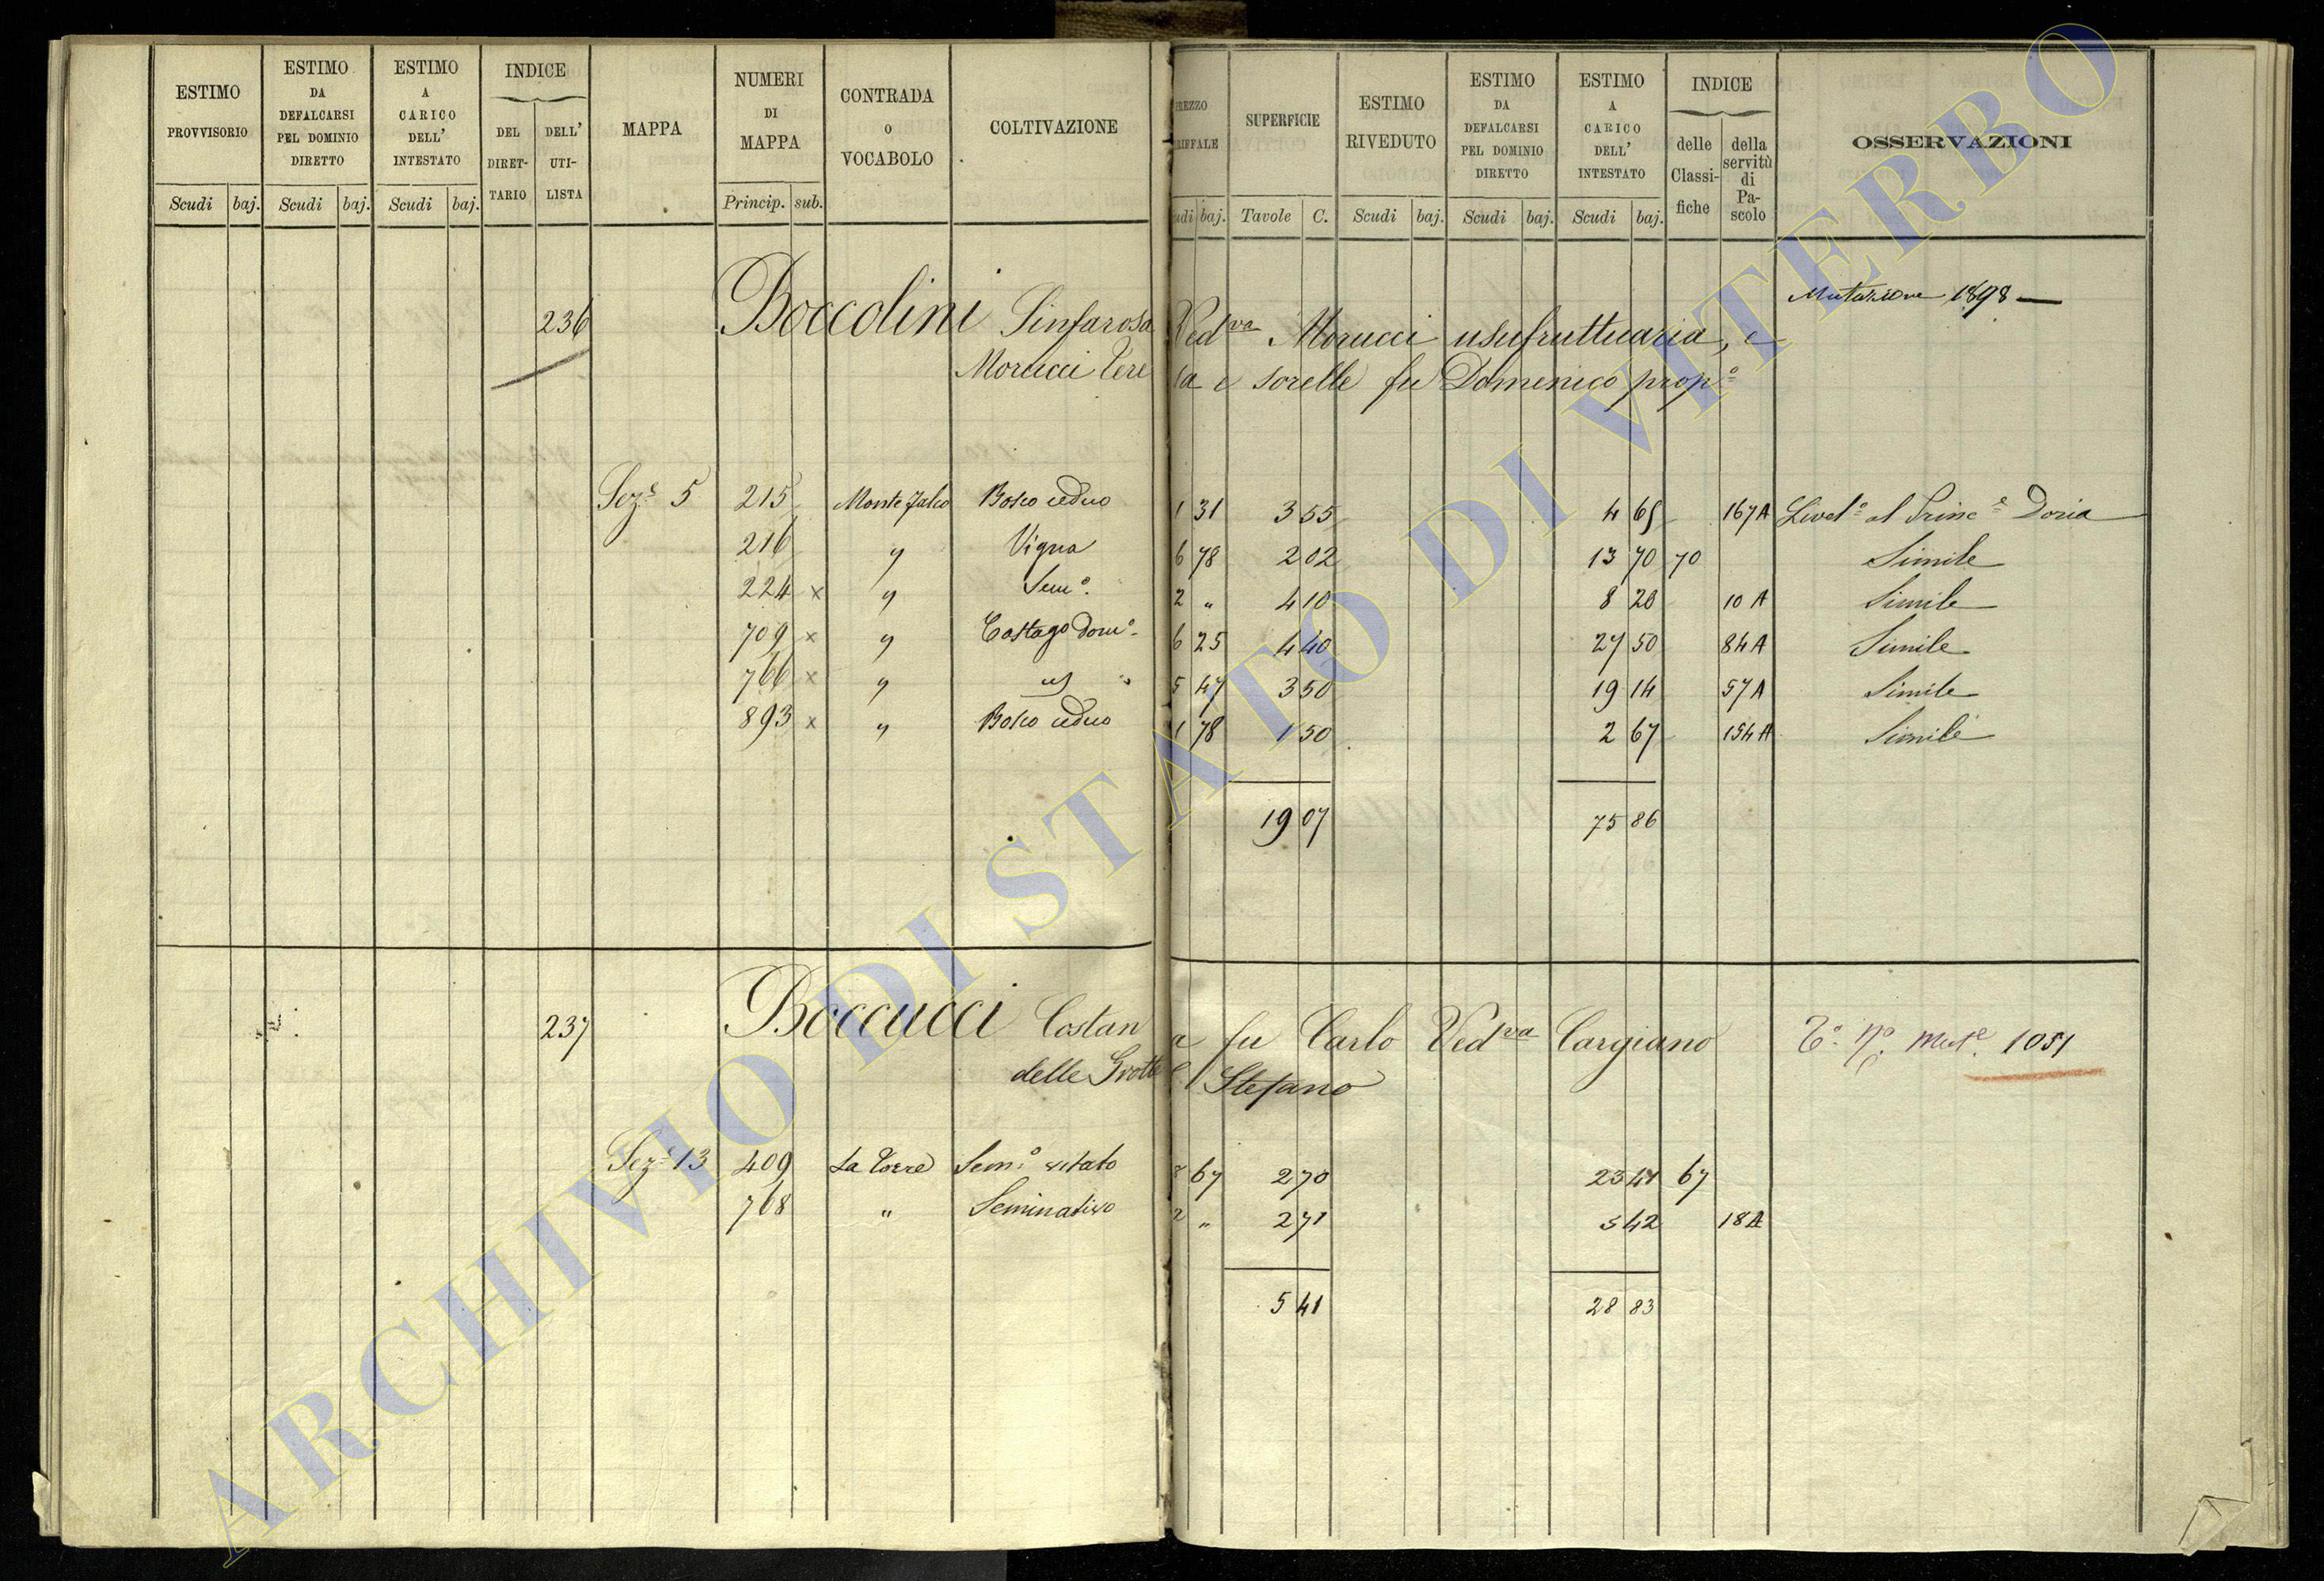 ESTIMO PROVVISORIO Scudi baj.
ESTIMO DA DEFALCARSI PEL DOMINIO DIRETTO Scudi baj.
ESTIMO A CARICO DELL' INTESTATO Scudi baj.
INDICE DEL DIRET- TARIO DELL' UTI- LISTA
MAPPA
NUMERI DI MAPPA Princip. sub.
CONTRADA O VOCABOLO
COLTIVAZIONE
REZZO RIFFALE udi baj.
SUPERFICIE Tavole C.
ESTIMO RIVEDUTO Scudi baj.
ESTIMO DA DEFALCARSI PEL DOMINIO DIRETTO Scudi baj.
ESTIMO A CARICO DELL' INTESTATO Scudi baj.
INDICE delle Classi- fiche della servitù di Pa- scolo
OSSERVAZIONI
Mutazione 1898
236 Boccolini Sinfarosa Ved.va Morucci usufruttuaria, e
Morucci Tere sa e sorelle fu Domenico prop.e
Sez.e 5 215 Monte Falco Bosco ceduo 1 31 3 55 4 65 167A Livel.o al Princ.e Doria
216 " Vigna 6 78 2 02 13 70 70 Simile
224 x " Sem.o 2 " 4 10 8 20 10 A Simile
709 x " Castag.o Dom.o 6 25 4 40 27 50 84 A Simile
766 x " " 5 47 3 50 19 14 57 A Simile
893 x " Bosco ceduo 1 78 1 50 2 67 154 A Simile
19 07 75 86
237 Boccucci Costan a fu Carlo Ved.va Cargiano
T.o n.o Mut.e 1051
delle Grotte S Stefano
Sez.e 13 409 La Torre Sem.o vitato 8 67 2 70 23 41 67
768 " Seminativo 2 " 2 71 5 42 18 A
5 41 28 83
ARCHIVIO DI STATO DI VITERBO